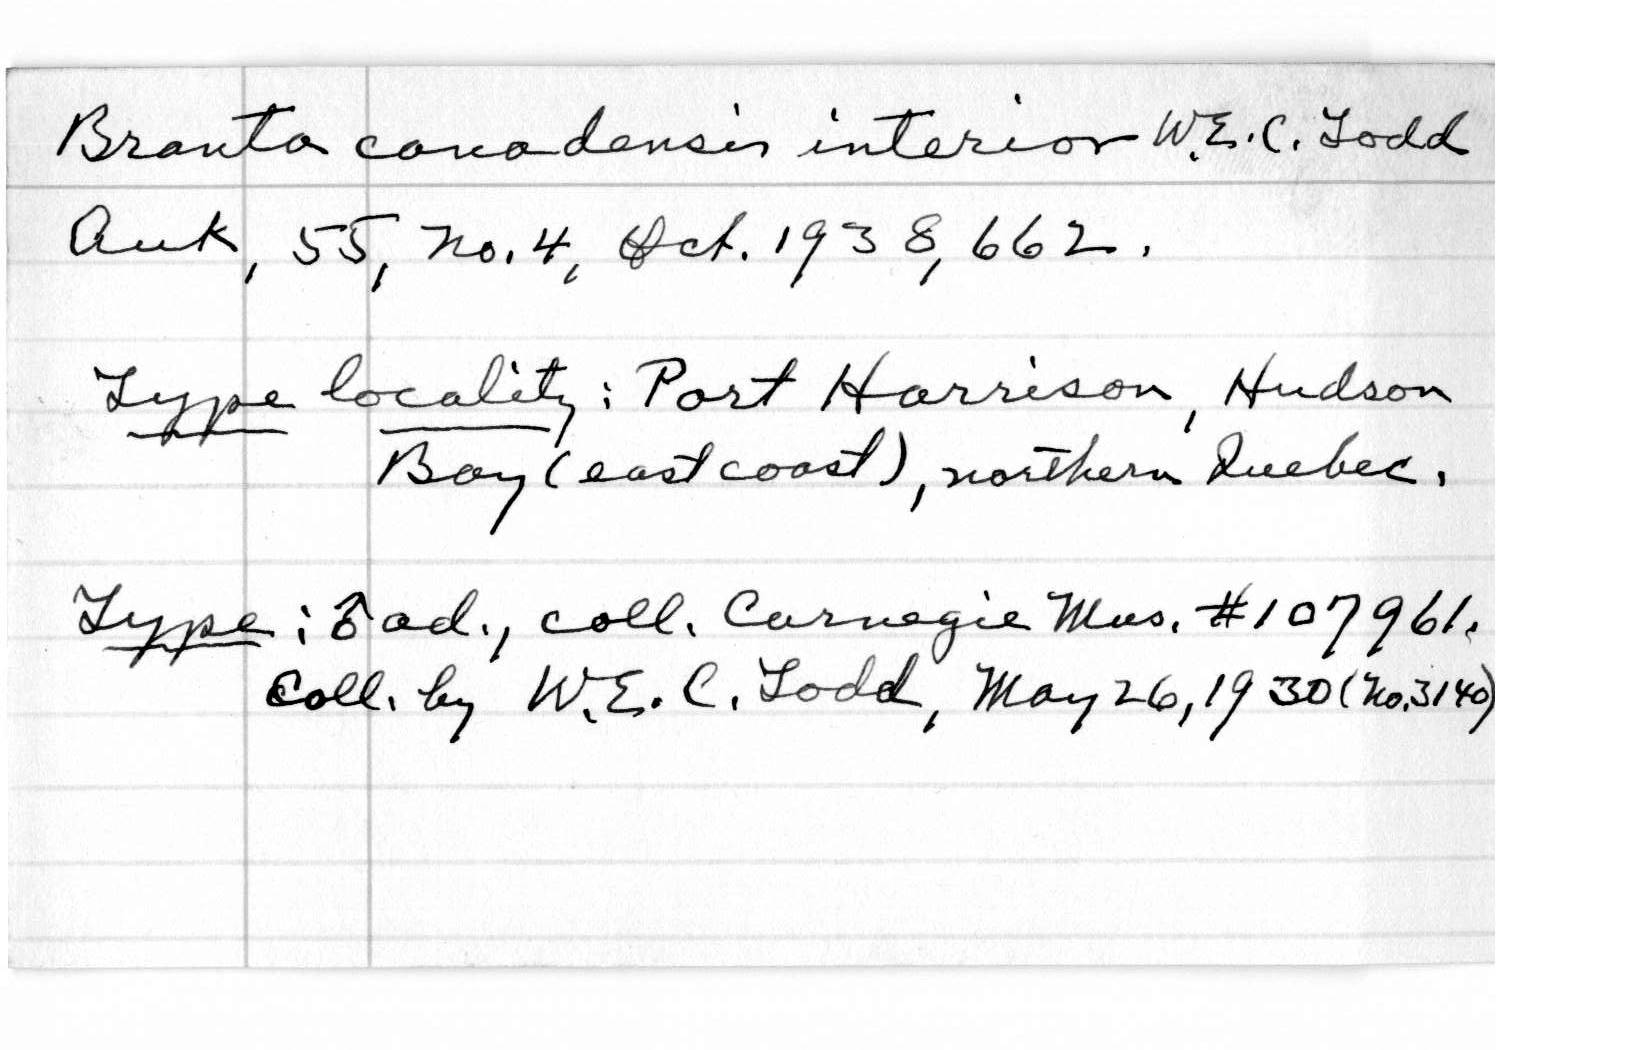 Branta canadensis interior W.E.C. Todd
Auk, 55, no. 4, Oct. 1938, 662.
Type locality: Port Harrison, Hudson
Bay (east coast), northern Quebec.
Type: ♂ ad., coll. Carnegie Mus. #107961.
Coll. by W.E.C. Todd, May 26, 1930 (no. 3140)